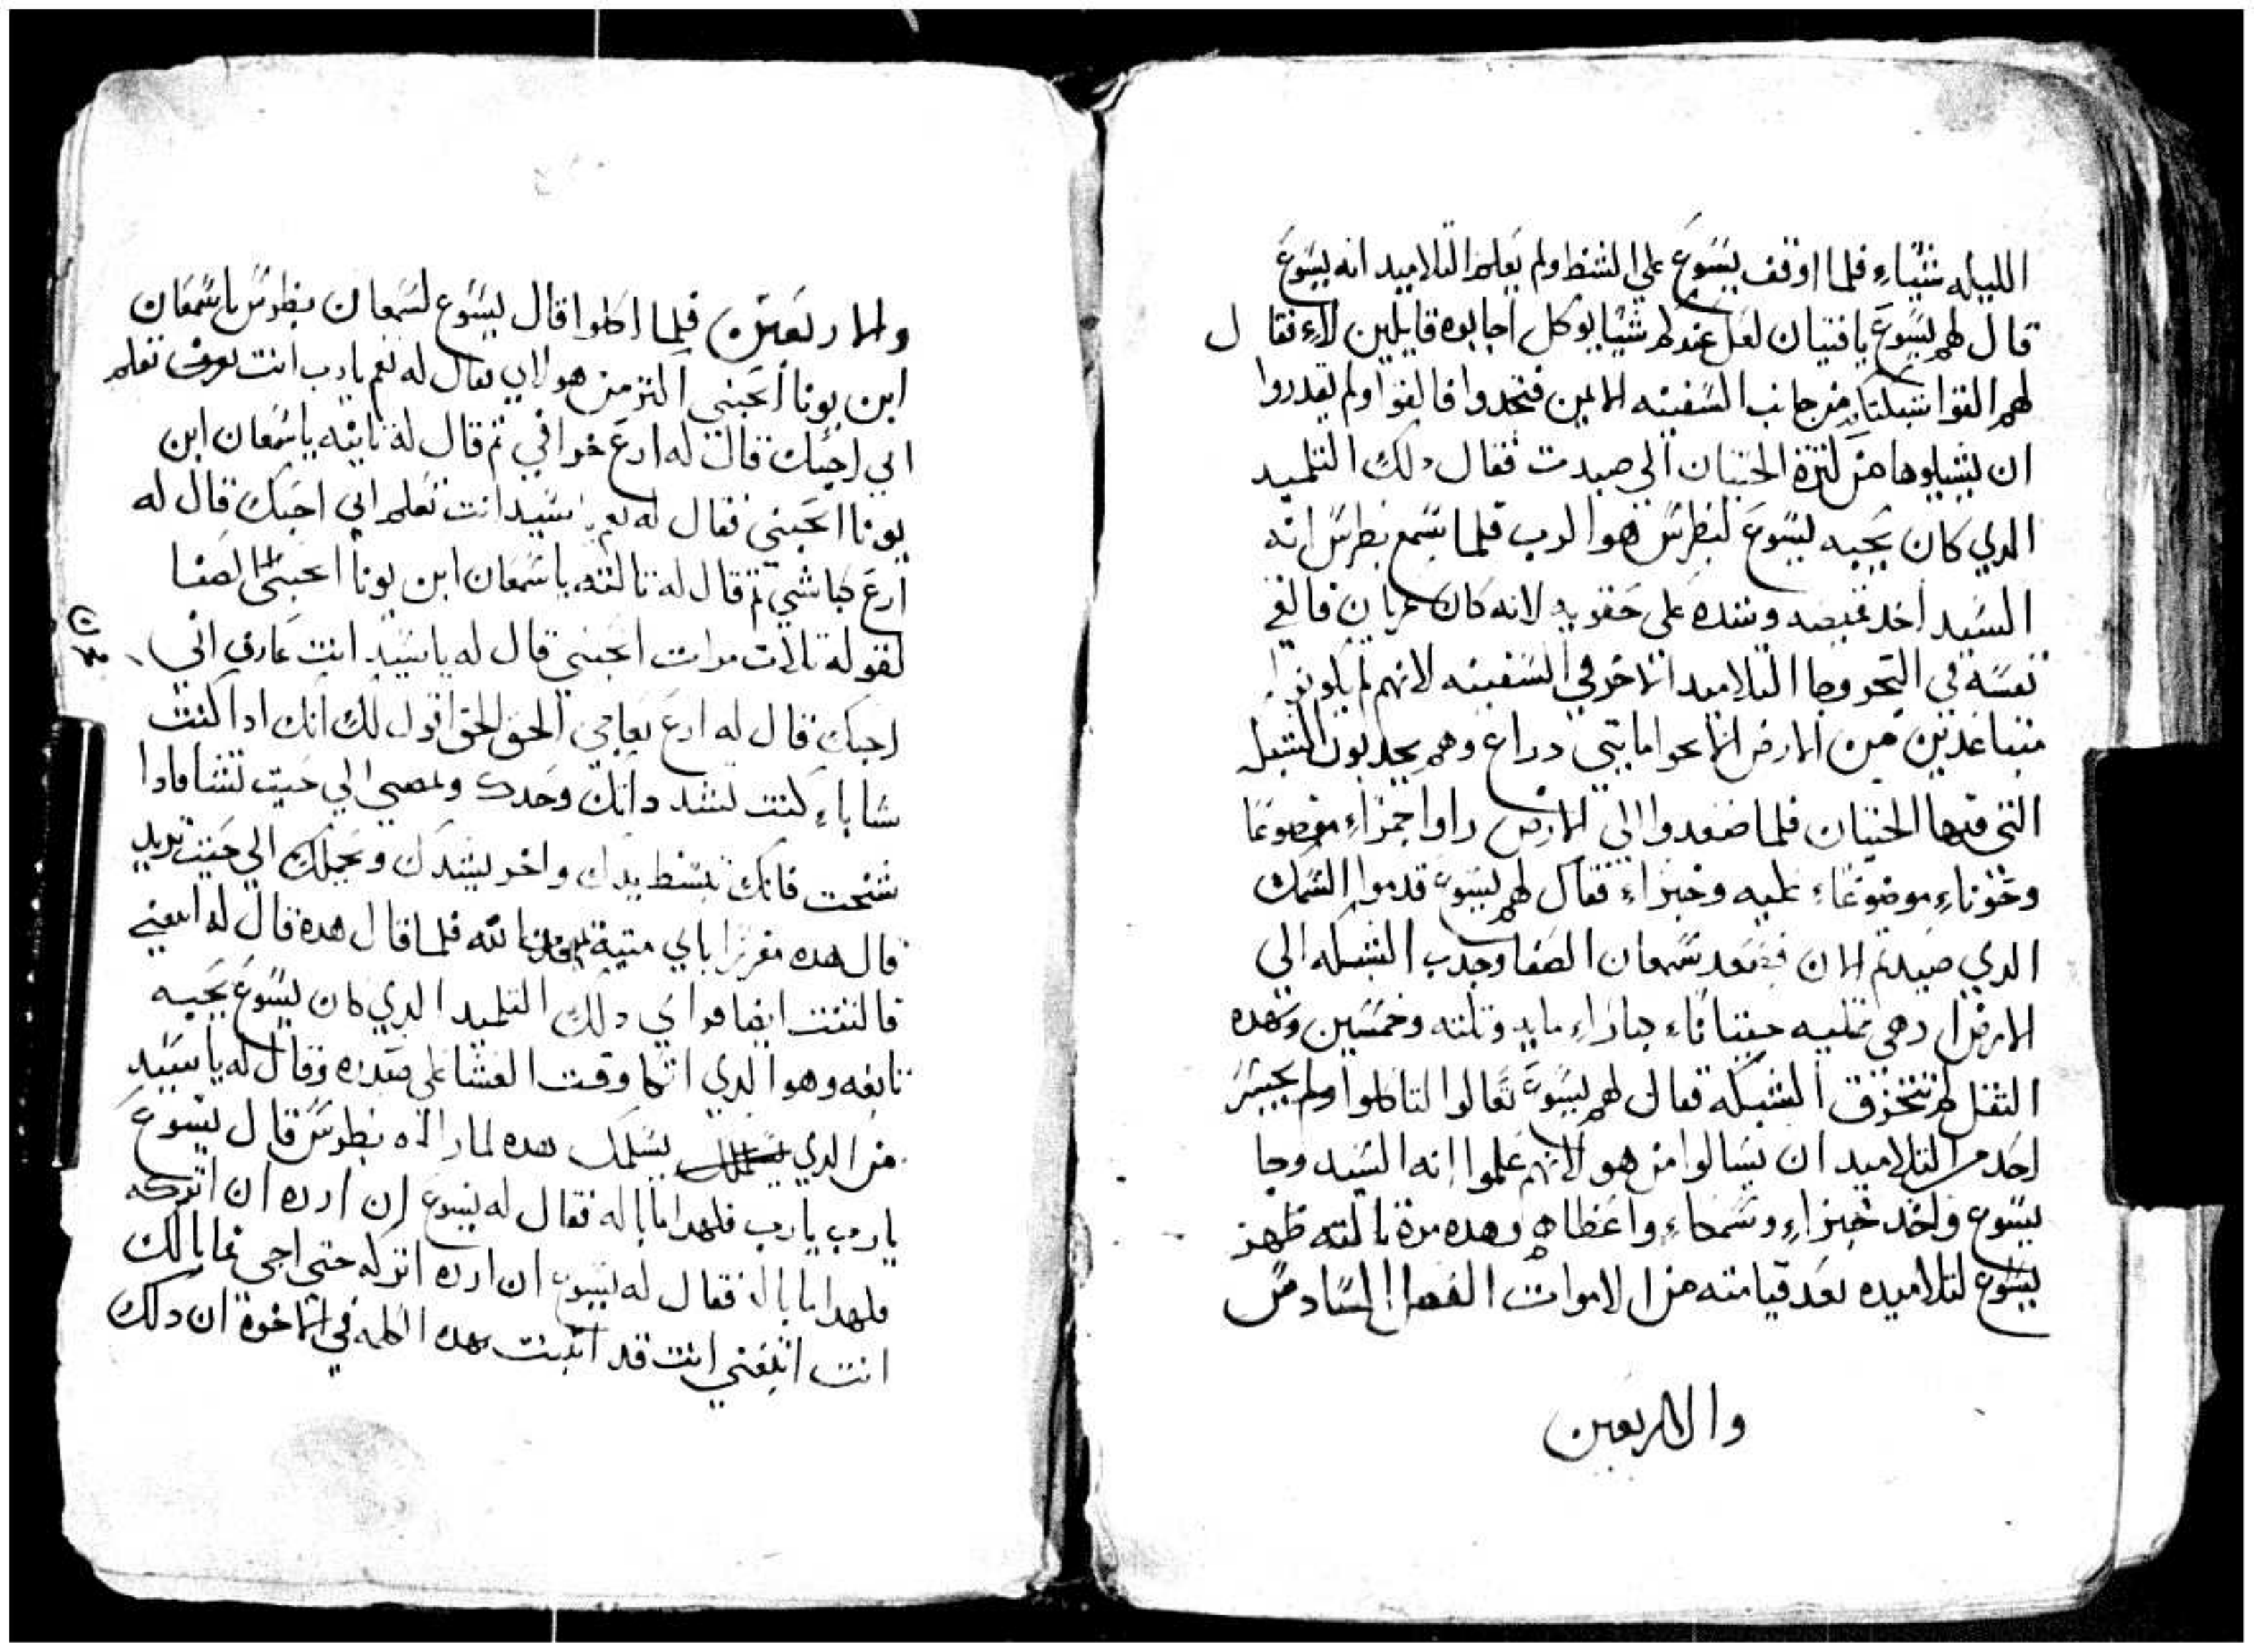 الليله شيّاءِ فلما اوقف يسَوعَ علي الشط ولم يعَلم التلاميد انه يسَوعَ
قال لهم يسَوعَ يا فتيان لعَل عندكم شيّا يوكل اجابوه قايلين لاءِ فقال
لهم القوا شبكتكم من جانب السَفينه الايمن فتجدوا فالقوا ولم يقدروا
ان يشيلوها من كثرة الحيتان الي صيدت فقال دلك التلميد
الدي كان يحَبه يسَوعَ لبطرسَ هوا الرب فلما سَمع بطرسَ انه
السَيد اخد قميصه وشده علي حَقويه لانه كان عريان فالقي
نفسَه في البحَر وجا التلاميد الاخر في السَفينه لانهم لم يكونوا
متباعَدين من الارض الا نحوا مايتي دراعَ وهم يجدبون الشبكه
التي فيها الحيتان فلما صَعَدوا الي الارض راوا جمراءِ موضوعَا
وحَوتاءِ موضوعَاءِ عَليه وخبزاءِ فقال لهم يسَوعَ قدموا السَمك
الدي صَيدتم الان فصَعَد سَمعان الصَفا وجدب الشبكه الي
الارض وهي ممَليه حيتاناءِ كباراءِ مايه وتلته وخمسَين وبهده
التقل لم تتخرق الشبكه فقال لهم يسَوعَ تعَالوا لتاكلوا ولم يجسَر
احَد من التلاميد ان يسَالوا من هو لانهم عَلموا انه السَيد وجا
يسَوع واخد خبزاءِ وسَمكاءِ واعَطاهم وهده مرة تالته ظهر
يسَوع لتلاميده بعَد قيامته من الاموات الفصل السَادسَ
والاربعين
والاربعَين فلما اكلوا قال يسَوع لسَمعان بطرسَ يا سَمعَان
ابن يونا احَبني اكتر من هولاي فقال له نعَم يا رب انت تعرف تعَلم
اني احَبك فقال له ارعَ خرافي تم قال له تانيه يا سَمعَان ابن
يونا احَبني فقال له نعَم يا سَيد انت تعَلم اني احَبك قال له
ارعَ كباشي تم قال له تالته يا سَمعَان ابن يونا احَبني الصَفا
لقوله تالات مرات احَبني قال له يا سَيد انت عَارف اني
احَبك قال له ارعَ نعَاجي الحَق الحَق اقول لك انك ادا كنت
شاباءِ كنت تشد داتك وحَدك وتمضي الي حَيت تشا فادا
شخت فانك تبسَط يدك واخر يشدك ويحَملك الي حَيت تريد
قال هده مقررا باي ميتية الله فلما قال هده قال له اتبعني
فالتفت الصفا فراي دلك التلميد الدي كان يسَوعَ يحَبه
تابعَه وهوا الدي اتكا وقت العَشا علي صَدره وقال له يا سَيد
من الدي يسَلمك هده لما راه بطرسَ قال يسَوعَ
يا رب يا رب فلهدا ما باله فقال له يسَوع ان ارده ان اتركه
فلهدا ما باله فقال له يسَوع ان ارده اتركه حتي اجي فما بالك
انت اتبعَني انت قد اتبنت بهده الكلمه في الاخوة ان دلك